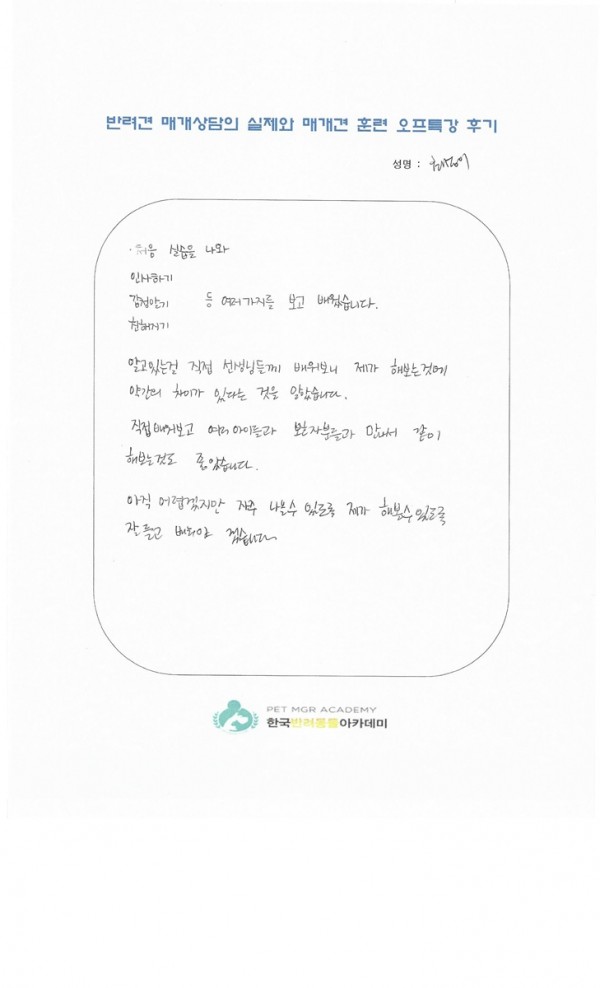 반려견 매개상담의 실제와 매개견 훈련 오프특강 후기
성명 :
· 처음 실습을 나와
인사하기
감정알기 등 여러가지를 보고 배웠습니다.
친해지기
알고있는걸 직접 선생님들께 배워보니 제가 해보는것에
약간의 차이가 있다는 것을 알았습니다.
직접배워보고 여러아이들과 보호자분들과 만나서 같이
해보는것도 좋았습니다.
아직 어렵겠지만 자주 나올수 있도록 제가 해볼수있도록
잘 듣고 배워야 겠습니다.
PET MGR ACADEMY
한국반려동물아카데미